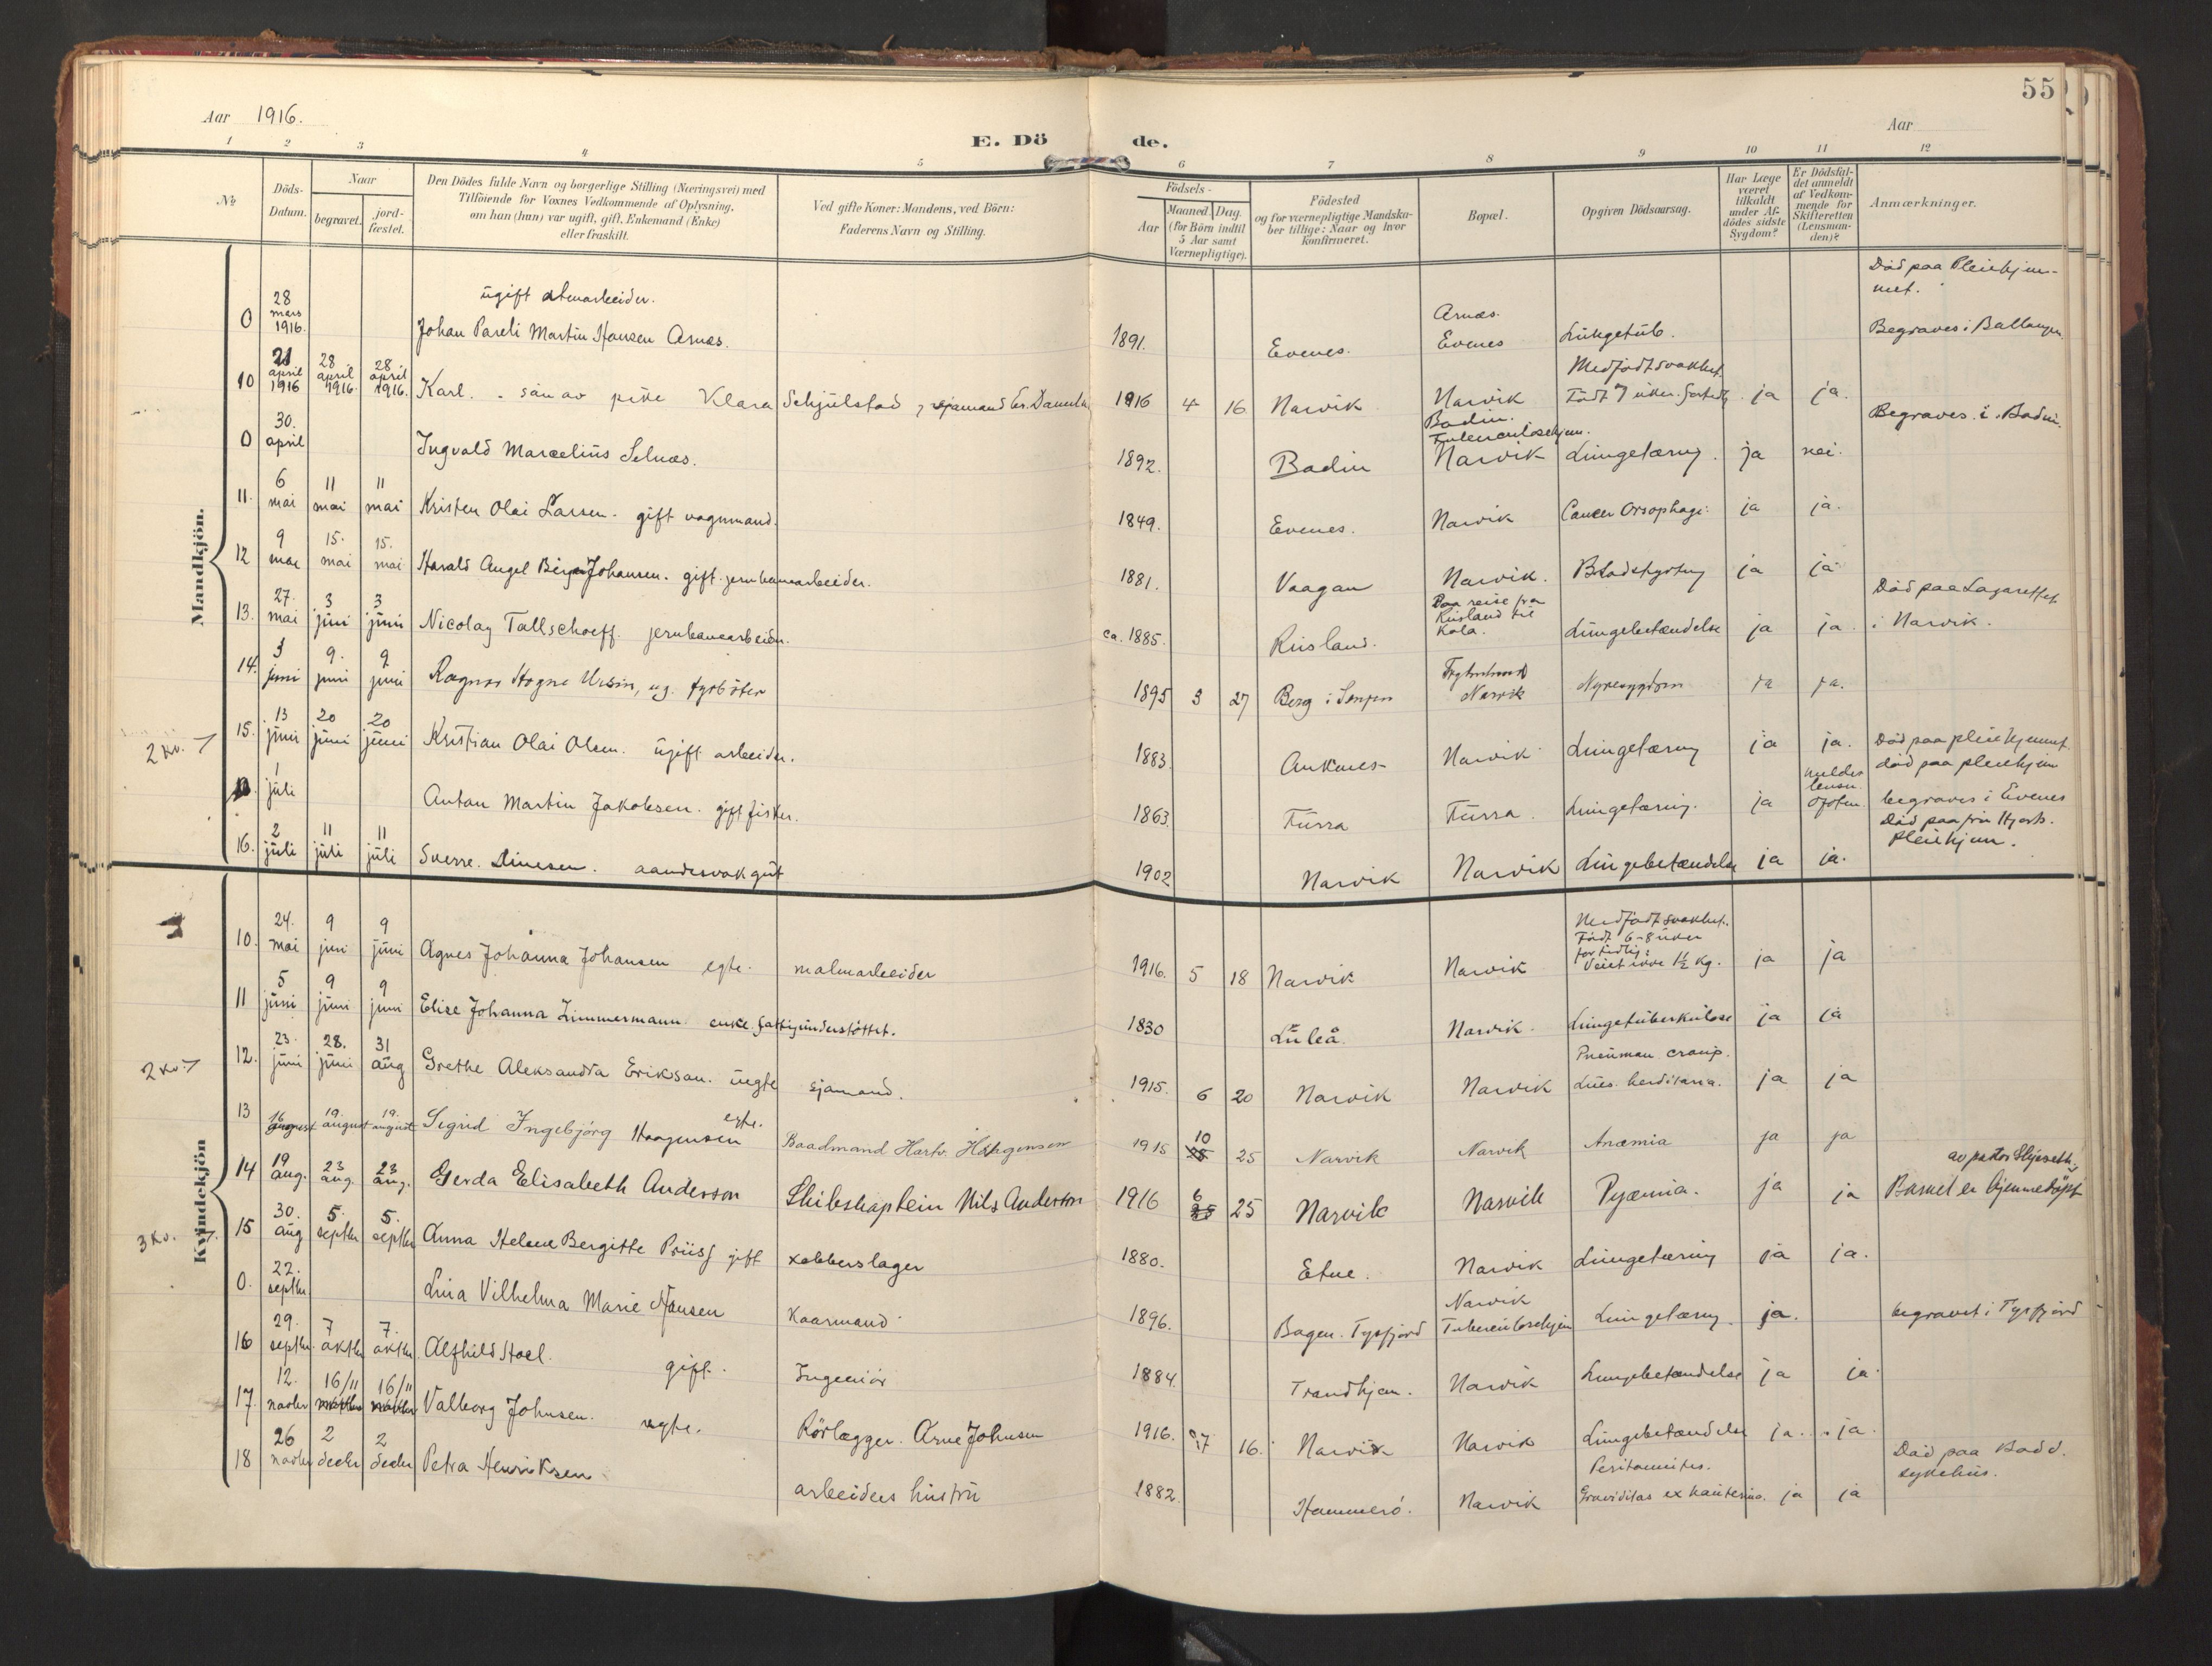 Aar 1916.
55
Aar
E. Döde.
1 2 3 4 5 6 7 8 9 10 11 12
№
Döds-Datum.
Naar
begravet.
jord-fæstet.
Den Dödes fulde Navn og borgerlige Stilling (Næringsvei) med
Tilföiende for Voxnes Vedkommende af Oplysning,
om han (hun) var ugift, gift, Enkemand (Enke)
eller fraskilt.
Ved gifte Koner: Mandens, ved Börn:
Faderens Navn og Stilling.
Födsels-
Aar
Maaned. Dag.
(for Börn indtil
5 Aar samt
Værnepligtige).
Födested
og for værnepligtige Mandska-
ber tillige: Naar og hvor
konfirmeret.
Bopæl.
Opgiven Dödsaarsag.
Har Læge
været
tilkaldt
under Af-
dödes sidste
Sygdom?
Er Dödsfal-
det anmeldt
af Vedkom-
mende for
Skifteretten
(Lensman-
den)?
Anmærkninger.
Mandkjön.
0 28 mars 1916. ugift Johan Pareli Martin Hansen Arnes. 1891. Evenes. Arnes. Evenes Lungetub. Död paa Pleiehjemmet. Begraves i Ballangen.
10 21 april 1916 28 april 1916. 28 april 1916. Karl. sön av pike Klara Schjulstad, sjømand 1916 4 16. Narvik Narvik Medfödt svakhet. Födt 7 uker ja ja.
0 30. april Ingvald Marcelius Selnæs. 1892. Bodin Bodin. Tuberculosehjem. Narvik Lungetæring. ja nei. Begraves i Bodin.
11. 6 mai 11 mai 11 mai Kristen Olai Larsen. gift vognmand. 1849. Evenes. Narvik Cancer Oesophagi. ja ja.
12 9 mai 15. mai 15. mai Harald Angel Birger Johansen. gift. jernbanearbeider. 1881. Vaagan Narvik. Blodstyrtning ja ja
13. 27. mai 3 juni 3 juni Nicolay Tallschoeff. jernbanearbeider. ca. 1885. Rusland. Paa reise fra Rusland til Kola. Lungebetændelse ja ja Död paa Lazarettet i Narvik.
14. 3 juni 9. juni 9 juni Ragnar Hogne Ursin, ug. fyrböter 1895 3 27 Berg i Senjen Narvik Nyresygdom ja ja.
2 kv. 15. 13 juni 20 juni 20 juni Kristian Olai Olsen. ugift arbeider. 1883. Ankenes Narvik Lungetæring ja ja. Död paa pleiehjemmet.
0. 1 juli Anton Martin Jakobsen. gift fisker. 1863. Furra Furra. Lungetæring. ja meldes lensm. Ofoten. död paa pleiehjem begraves i Evenes
16. 2 juli 11 juli 11 juli Sverre Dinesen. aandssvak gut 1902 Narvik Narvik Lungebetændelse ja ja. Död paa fru Hjorts. Pleiehjem.
Kvindekjön
10. 24. mai 9 juni 9 juni Agnes Johanna Johansen egte. malmarbeider 1916. 5 18 Narvik Narvik Medfödt svakhet. Födt 6-8 uker for tidlig. Veiet ikke 1½ kg. ja ja
11 5 juni 9 juni 9 juni Elise Johanna Zimmermann enke fattigunderstöttet. 1830 Luleå. Narvik. Lungetuberkulose ja ja
2 kv. 12. 23. juni 28. juni 31 aug Grethe Aleksandra Erikson. uegte sjømand. 1915. 6 20 Narvik Narvik Pneumon. croup. Lues. herditaria. ja ja
13 16 august 19. august 19. august Sigrid Ingebjörg Haagensen egte. Baadmand Hartv. Haagensen 1915 10 25 Narvik Narvik Anæmia ja ja
14 19 aug. 23 aug. 23 aug. Gerda Elisabeth Anderson Skibskaptein Nils Anderson 1916 6 25 Narvik Narvik Pyæmia. ja ja av pastor Barnet er hjemmedöpt
3 kv. 15 30. aug 5. septbr 5. septbr Anna Helene Bergitte Priiss gift kobberslager 1880. Etne. Narvik Lungetæring ja ja.
0. 22. septbr Lina Vilhelma Marie Hansen Kaarmand 1896. Bogen. Tysfjord Narvik Tuberculosehjem Lungetæring. ja. begravet i Tysfjord
16 29. septbr. 7 oktbr 7. oktbr. Alfhild Hoel. gift. Ingeniör 1884. Trondhjem. Narvik Lungebetændelse ja ja.
17. 12. novbr 16/11 16/11 Valborg Johnsen. egte. Rörlægger. Arne Johnsen 1916. 7 16. Narvik Narvik Lungebetændelse ja. ja.
18 26 novbr 2 decbr 2 decbr Petra Henriksen arbeiders hustru 1882. Hammerö. Narvik Peritonnitis. Graviditas ex hauterina. ja ja Död paa Bodö. sykehus.